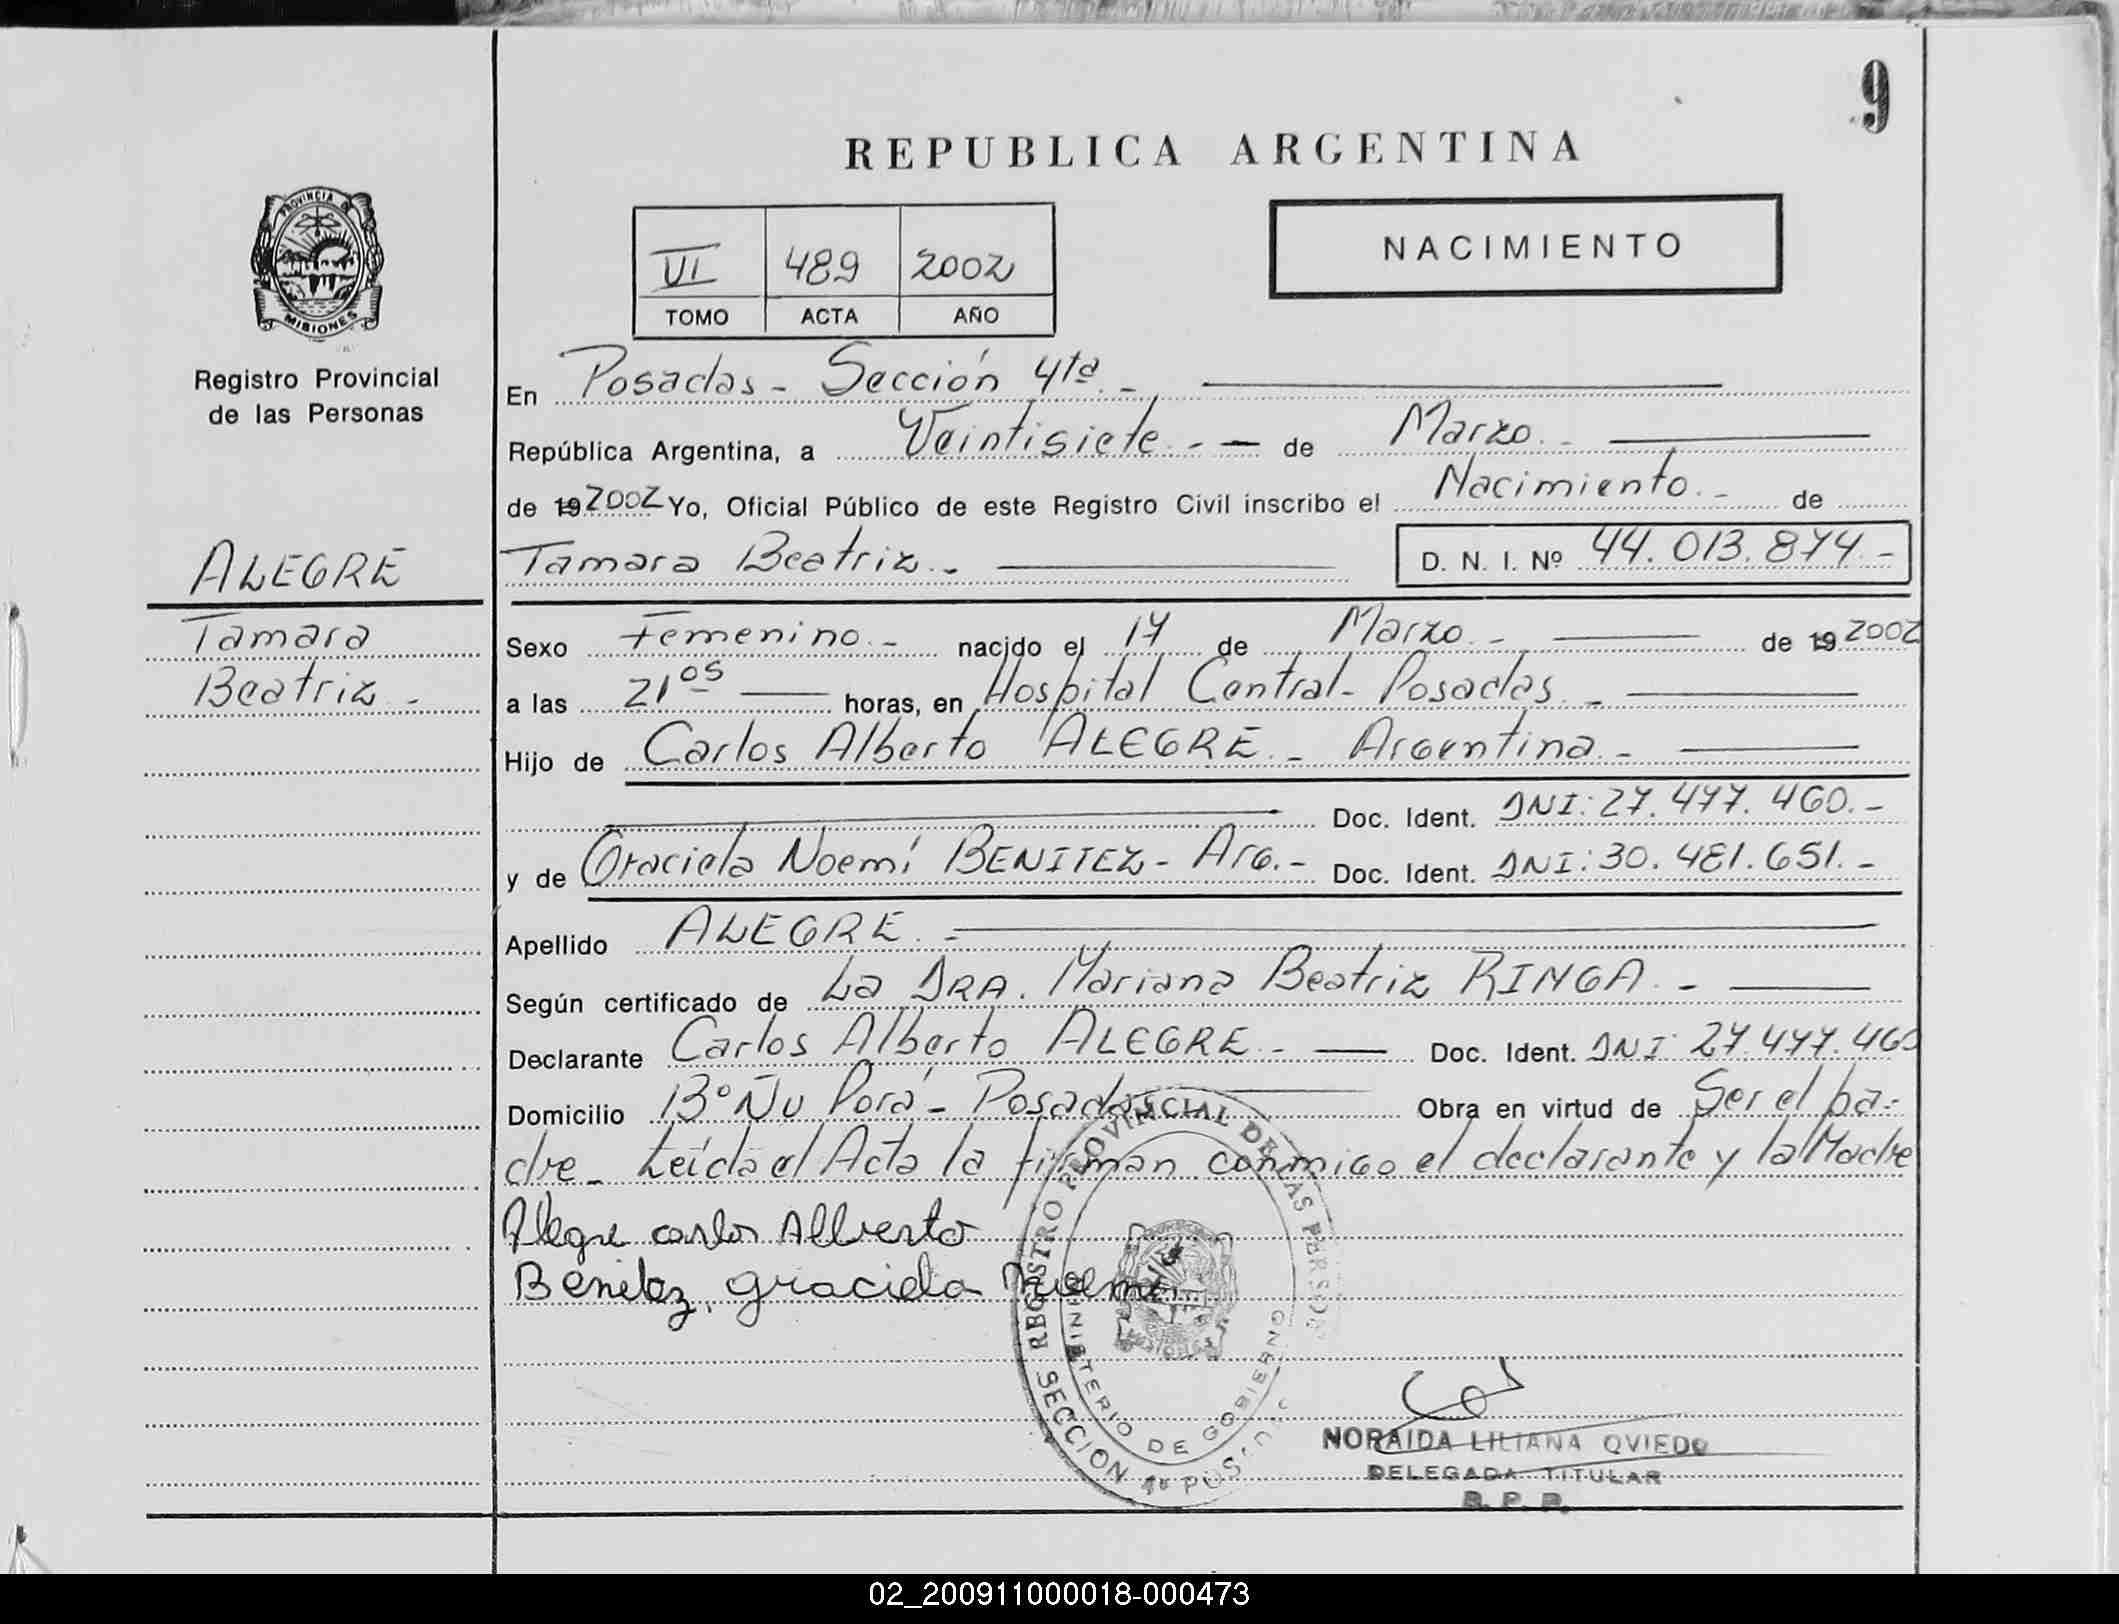 9
REPUBLICA ARGENTINA
PROVINCIA DE
MISIONES
Registro Provincial
de las Personas
VI 489 2002
TOMO ACTA AÑO
NACIMIENTO
En Posadas - Sección 4ta. -
República Argentina, a Veintisiete. - - de Marzo. -
de 19 2002 Yo, Oficial Público de este Registro Civil inscribo el Nacimiento. - de
Tamara Beatriz. - D. N. I. Nº 44.013.874. -
ALEGRE
Tamara
Beatriz -
Sexo Femenino. - nacido el 17 de Marzo. - de 19 2002
a las 21 05 horas, en Hospital Central - Posadas. -
Hijo de Carlos Alberto ALEGRE. - Argentina. -
Doc. Ident. DNI: 27.477.460. -
y de Graciela Noemí BENITEZ - Arg. - Doc. Ident. DNI: 30.481.651. -
Apellido ALEGRE. -
Según certificado de La DRA. Mariana Beatriz RINGA. -
Declarante Carlos Alberto ALEGRE. - Doc. Ident. DNI 27.477.460
Domicilio Bº Ñu Porá - Posadas Obra en virtud de Ser el pa-
dre - Leída el Acta la firman conmigo el declarante y la Madre
Alegre carlos Alberto
Benitez, graciela Noemi
REGISTRO PROVINCIAL DE LAS PERSONAS
MINISTERIO DE GOBIERNO
SECCION 4ª POSADAS
NORAIDA LILIANA OVIEDO
DELEGADA TITULAR
R. P. P.
02_200911000018-000473